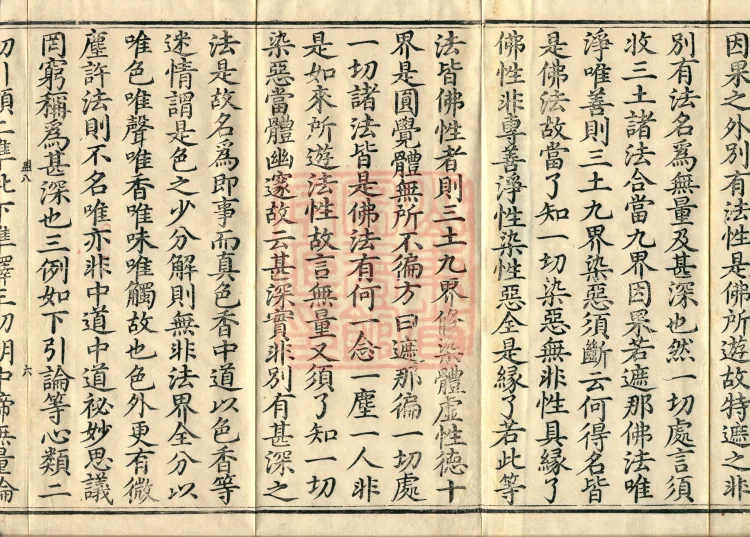 因果之外別有法性是佛所遊故特遮之非
別有法名爲無量及甚深也然一切處言須
收三土諸法合當九界因果若遮那佛法唯
淨唯善則三土九界染惡須斷云何得名皆
是佛法故當了知一切染惡無非性具緣了
佛性非專善淨性染性惡全是緣了若此等
法皆佛性者則三土九界修染體虛性德十
界是圓覺體無所不徧方曰遮那徧一切處
一切諸法皆是佛法有何一念一塵一人非
是如來所遊法性故言無量又須了知一切
染惡當體幽邃故云甚深實非別有甚深之
法是故名爲即事而真色香中道以色香等
迷情謂是色之少分解則無非法界全分以
唯色唯聲唯香唯味唯觸故也色外更有微
塵許法則不名唯亦非中道中道祕妙思議
罔窮稱爲甚深也三例如下引論等心類二
初引類二準此下準釋三初明中帝無量論